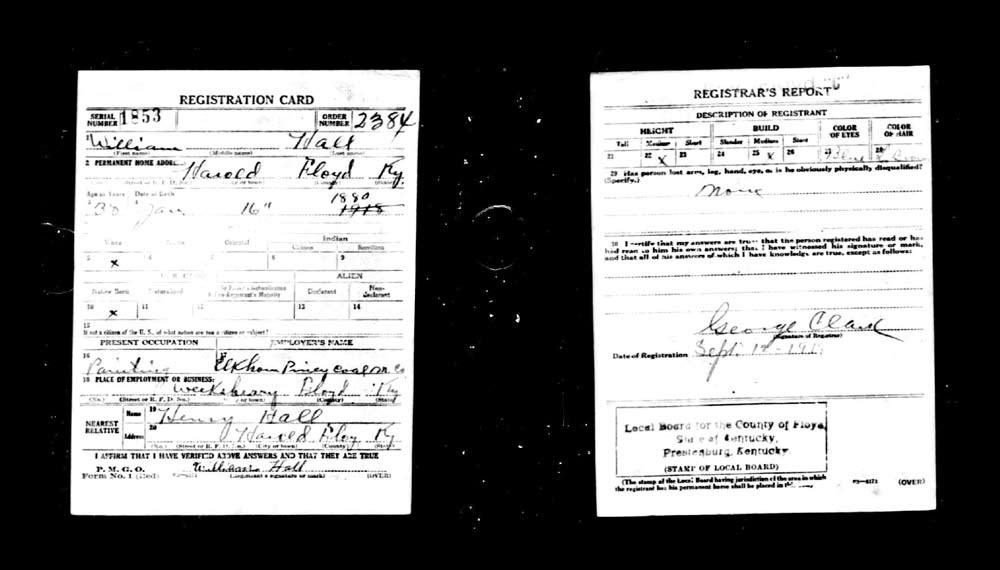 REGISTRATION CARD
SERIAL NUMBER 1853 ORDER NUMBER 2384
1 William Hall
(First name) (Middle name) (Last name)
2 PERMANENT HOME ADDRESS: Harold Floyd Ky.
(Street or R. F. D. No.) (City or town) (County) (State)
Age in Years Date of Birth
3 38 4 Jan 16" 1880 1918
Indian
White Oriental Citizen
5 x 6 7 8 9
U. S. CITIZEN ALIEN
Native Born Naturalized Declarant Non-declarant
10 x 11 12 13 14
15
If not a citizen of the U. S., of what nation are you a citizen or subject?
PRESENT OCCUPATION EMPLOYER'S NAME
16 Painting Elkhorn Piney Coal Co
18 PLACE OF EMPLOYMENT OR BUSINESS:
Weeksbury Floyd Ky
(No.) (Street or R. F. D. No.) (City or town) (County) (State)
NEAREST RELATIVE Name 19 Henry Hall
Address 20 Harold Floy Ky
(No.) (Street or R. F. D. No.) (City or town) (County) (State)
I AFFIRM THAT I HAVE VERIFIED ABOVE ANSWERS AND THAT THEY ARE TRUE
P. M. G. O. William Hall
Form No. 1 (Red) (Registrant's signature or mark) (OVER)
REGISTRAR'S REPORT
DESCRIPTION OF REGISTRANT
HEIGHT BUILD COLOR OF EYES COLOR OF HAIR
Tall Medium Short Slender Medium Stout
21 22 x 23 24 25 x 26 27 Blue 28
29 Has person lost arm, leg, hand, eye, or is he obviously physically disqualified?
(Specify.)
None
30 I certify that my answers are true; that the person registered has read or has
had read to him his own answers; that I have witnessed his signature or mark,
and that all of his answers of which I have knowledge are true, except as follows:
George Clark
(Signature of Registrar)
Date of Registration Sept. 12 - 1918
Local Board for the County of Floyd,
State of Kentucky,
Prestonsburg, Kentucky
(STAMP OF LOCAL BOARD)
(The stamp of the Local Board having jurisdiction of the area in which
the registrant has his permanent home shall be placed in this
03—6171 (OVER)